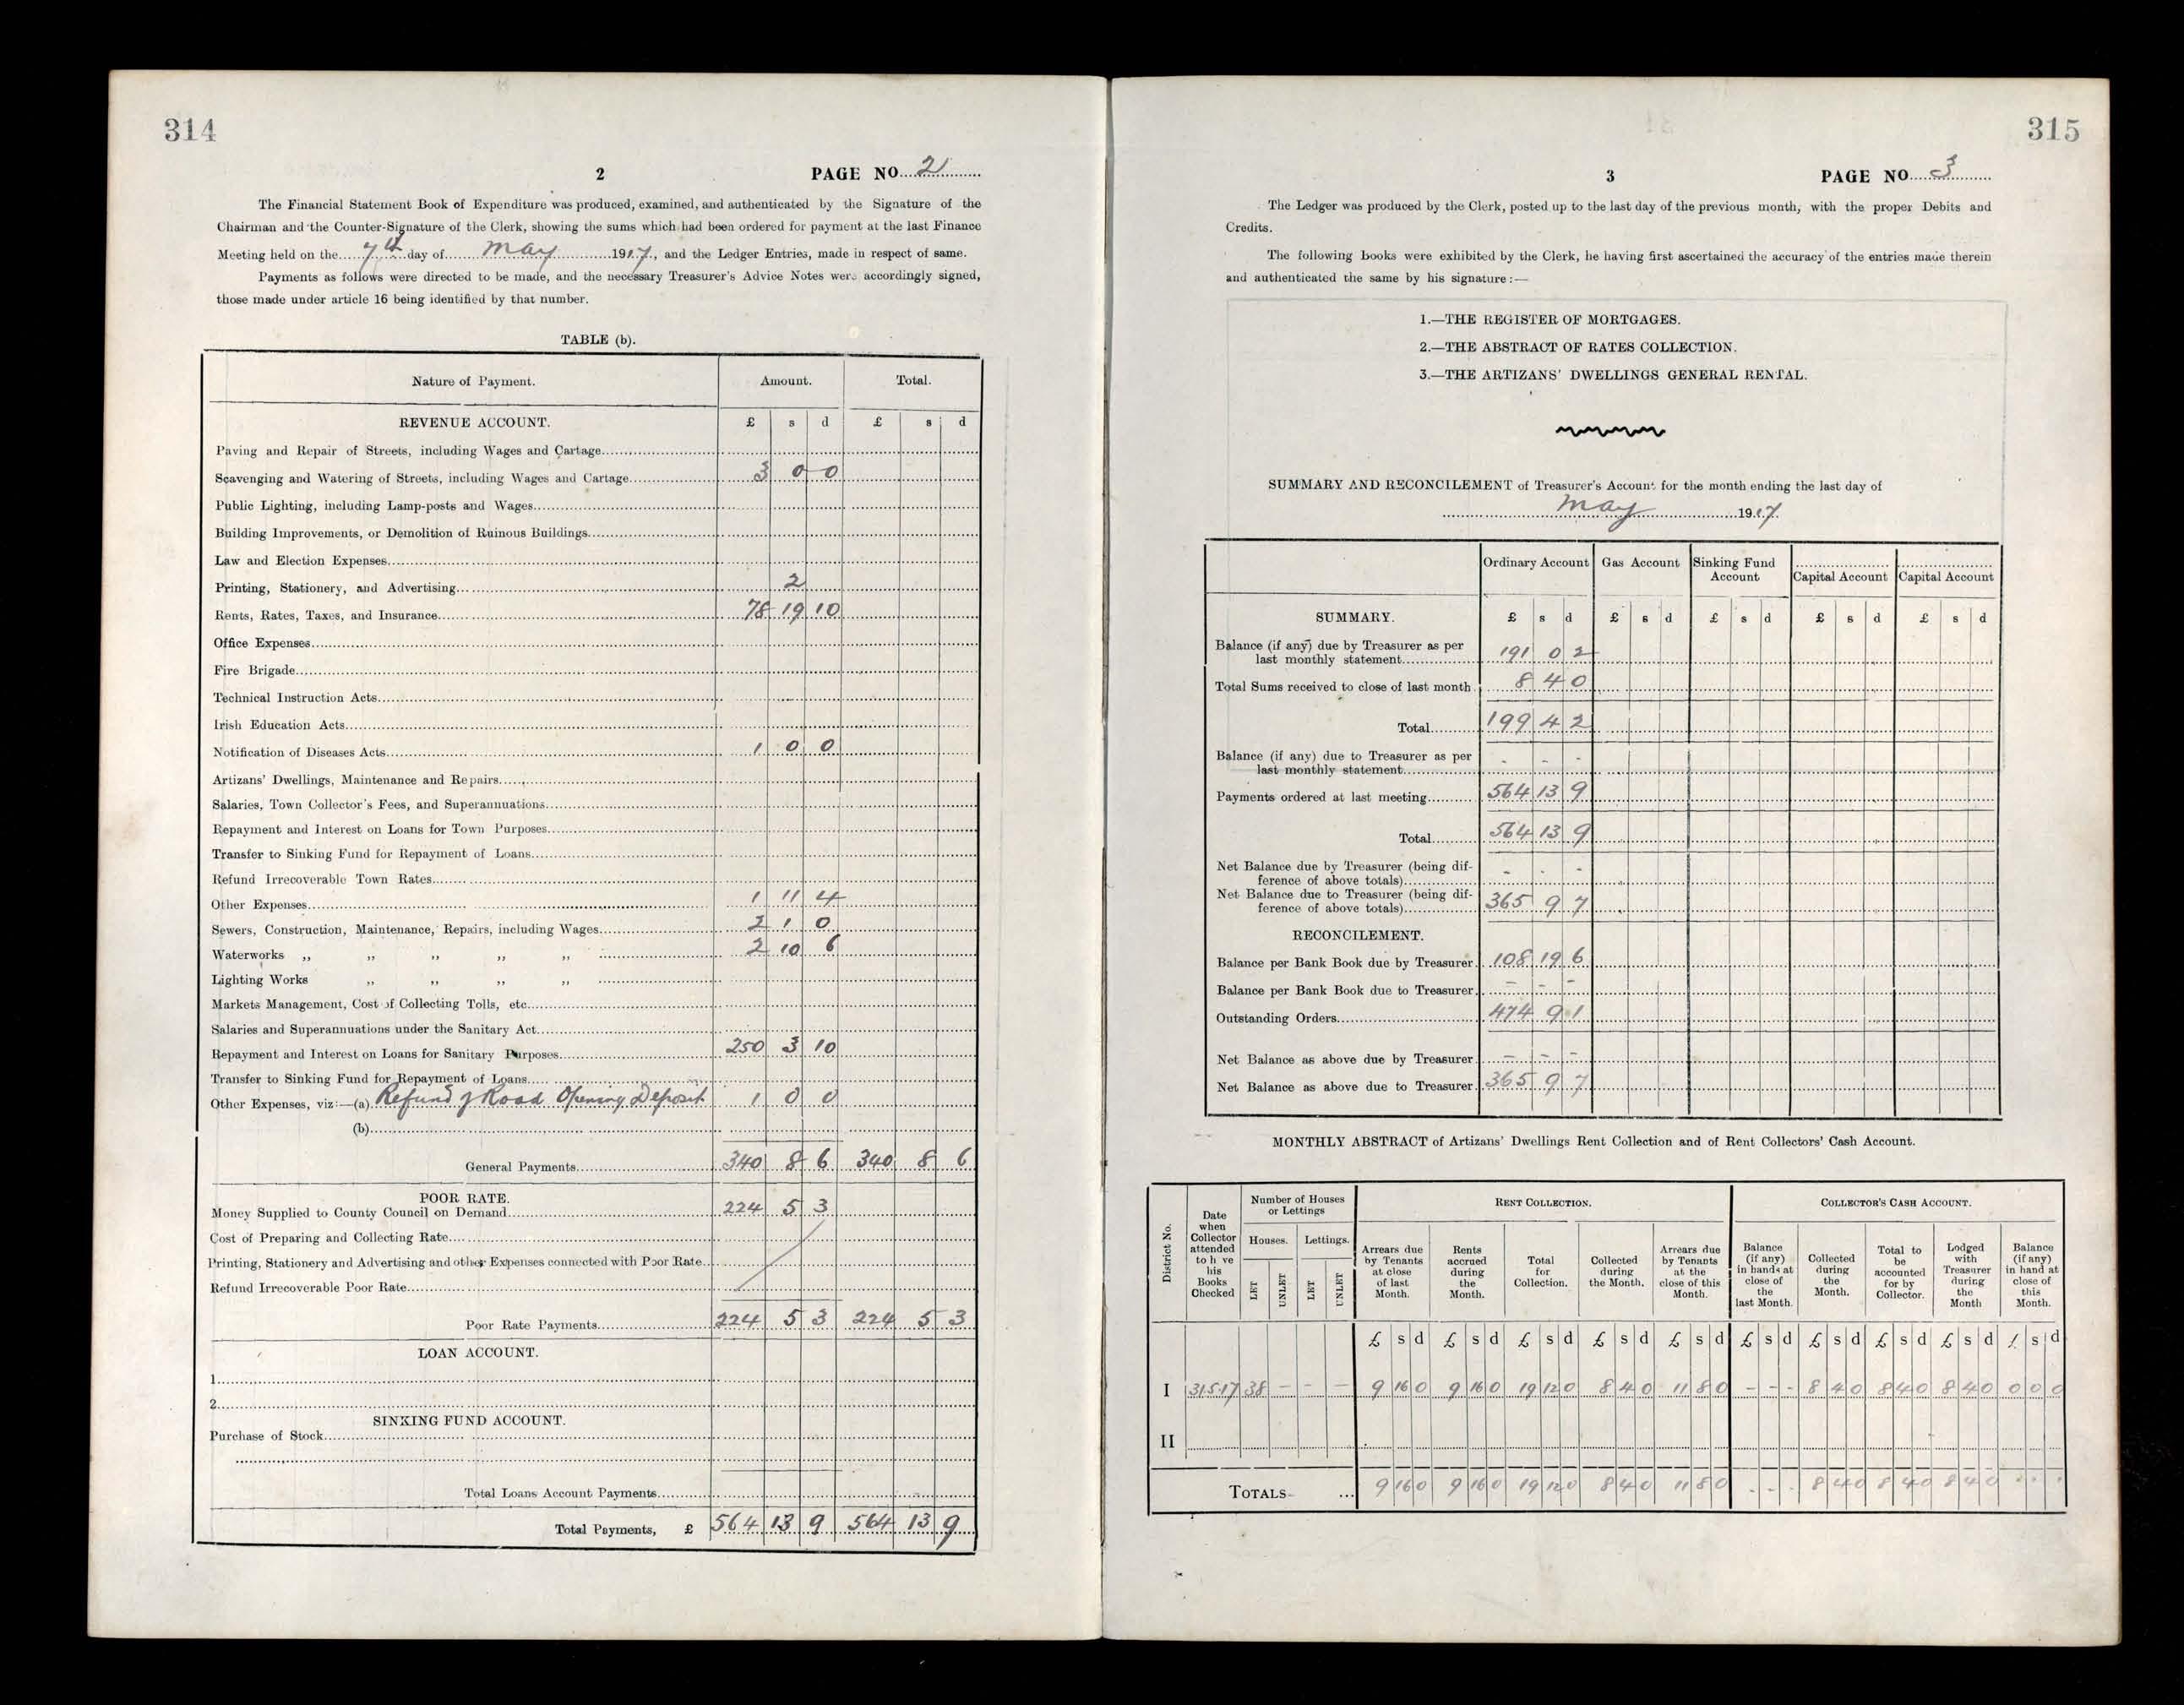 314
2 PAGE NO. 2
The Financial Statement Book of Expenditure was produced, examined, and authenticated by the Signature of the
Chairman and the Counter-Signature of the Clerk, showing the sums which had been ordered for payment at the last Finance
Meeting held on the 7th day of May 1917, and the Ledger Entries, made in respect of same.
Payments as follows were directed to be made, and the necessary Treasurer's Advice Notes were accordingly signed,
those made under article 16 being identified by that number.
TABLE (b).
Nature of Payment. Amount. Total.
REVENUE ACCOUNT. £ s d £ s d
Paving and Repair of Streets, including Wages and Cartage
Scavenging and Watering of Streets, including Wages and Cartage 3 0 0
Public Lighting, including Lamp-posts and Wages
Building Improvements, or Demolition of Ruinous Buildings
Law and Election Expenses
Printing, Stationery, and Advertising 2
Rents, Rates, Taxes, and Insurance 78 19 10
Office Expenses
Fire Brigade
Technical Instruction Acts
Irish Education Acts
Notification of Diseases Acts 1 0 0
Artizans' Dwellings, Maintenance and Repairs
Salaries, Town Collector's Fees, and Superannuations
Repayment and Interest on Loans for Town Purposes
Transfer to Sinking Fund for Repayment of Loans
Refund Irrecoverable Town Rates
Other Expenses 1 11 4
Sewers, Construction, Maintenance, Repairs, including Wages 2 1 0
Waterworks ,, ,, ,, ,, ,, 2 10 6
Lighting Works ,, ,, ,, ,,
Markets Management, Cost of Collecting Tolls, etc.
Salaries and Superannuations under the Sanitary Act
Repayment and Interest on Loans for Sanitary Purposes 250 3 10
Transfer to Sinking Fund for Repayment of Loans
Other Expenses, viz:—(a) Refund of Road Opening Deposit 1 0 0
(b)
General Payments 340 8 6 340 8 6
POOR RATE.
Money Supplied to County Council on Demand 224 5 3
Cost of Preparing and Collecting Rate
Printing, Stationery and Advertising and other Expenses connected with Poor Rate
Refund Irrecoverable Poor Rate
Poor Rate Payments 224 5 3 224 5 3
LOAN ACCOUNT.
1
2
SINKING FUND ACCOUNT.
Purchase of Stock
Total Loans Account Payments
Total Payments, £ 564 13 9 564 13 9
315
3 PAGE NO. 3
The Ledger was produced by the Clerk, posted up to the last day of the previous month, with the proper Debits and
Credits.
The following Books were exhibited by the Clerk, he having first ascertained the accuracy of the entries made therein
and authenticated the same by his signature:—
1.—THE REGISTER OF MORTGAGES.
2.—THE ABSTRACT OF RATES COLLECTION.
3.—THE ARTIZANS' DWELLINGS GENERAL RENTAL.
SUMMARY AND RECONCILEMENT of Treasurer's Account for the month ending the last day of
May 1917.
Ordinary Account Gas Account Sinking Fund Account Capital Account Capital Account
SUMMARY. £ s d £ s d £ s d £ s d £ s d
Balance (if any) due by Treasurer as per
last monthly statement 191 0 2
Total Sums received to close of last month 8 4 0
Total 199 4 2
Balance (if any) due to Treasurer as per
last monthly statement - - -
Payments ordered at last meeting 564 13 9
Total 564 13 9
Net Balance due by Treasurer (being dif-
ference of above totals) - - -
Net Balance due to Treasurer (being dif-
ference of above totals) 365 9 7
RECONCILEMENT.
Balance per Bank Book due by Treasurer 108 19 6
Balance per Bank Book due to Treasurer - - -
Outstanding Orders 474 9 1
Net Balance as above due by Treasurer - - -
Net Balance as above due to Treasurer 365 9 7
MONTHLY ABSTRACT of Artizans' Dwellings Rent Collection and of Rent Collectors' Cash Account.
District No.
Date when Collector attended to h ve his Books Checked
Number of Houses or Lettings
Houses. Lettings.
LET UNLET LET UNLET
RENT COLLECTION.
Arrears due by Tenants at close of last Month.
Rents accrued during the Month.
Total for Collection.
Collected during the Month.
Arrears due by Tenants at the close of this Month.
COLLECTOR'S CASH ACCOUNT.
Balance (if any) in hands at close of the last Month.
Collected during the Month.
Total to be accounted for by Collector.
Lodged with Treasurer during the Month
Balance (if any) in hand at close of this Month.
£ s d £ s d £ s d £ s d £ s d £ s d £ s d £ s d £ s d £ s d
I 31.5.17 38 - - - 9 16 0 9 16 0 19 12 0 8 4 0 11 8 0 - - - 8 4 0 8 4 0 8 4 0 0 0 0
II
TOTALS ... 9 16 0 9 16 0 19 12 0 8 4 0 11 8 0 - - - 8 4 0 8 4 0 8 4 0